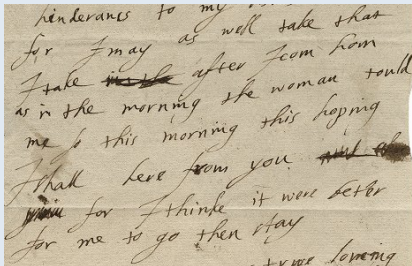 hinderancs to my
for I may as well take that
I take after I com hom
as in the morning the woman tould
me so this morning this hoping
I shall here from you
for I thinke it were better
for me to go then stay
trwe loveing